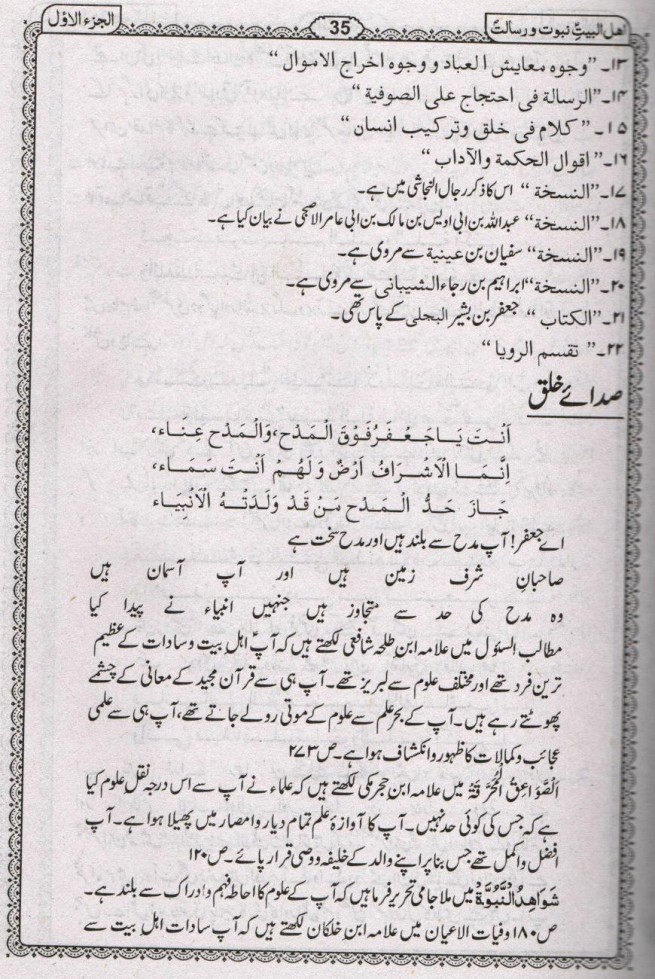 اهل البیتؑ نبوت و رسالت 35 الجزء الاوّل
۱۳۔ ”وجوه معايش العباد ووجوه اخراج الاموال“
۱۴۔ ”الرسالة فى احتجاج على الصوفية“
۱۵۔ ”كلام فى خلق وتركيب انسان“
۱۶۔ ”اقوال الحكمة والآداب“
۱۷۔ ”النسخة“ اس کا ذکر رجال النجاشی میں ہے۔
۱۸۔ ”النسخة“ عبداللہ بن ابی اویس بن مالک بن ابی عامر الاصبحی نے بیان کیا ہے۔
۱۹۔ ”النسخة“ سفیان بن عینیة سے مروی ہے۔
۲۰۔ ”النسخة“ ابراہیم بن رجاء الشیبانی سے مروی ہے۔
۲۱۔ ”الكتاب“ جعفر بن بشیر البجلی کے پاس تھی۔
۲۲۔ ”تقسم الرویا“
صدائے خلق
اَنْتَ يَا جَعْفَرُ فَوْقَ الْمَدْحِ، وَالْمَدْحُ عِنَاء،
اِنَّمَا الْاَشْرَافُ اَرْضٌ وَلَهُمْ اَنْتَ سَمَاء،
جَازَ حَدُّ الْمَدْحِ مَنْ قَدْ وَلَدَتْهُ الْاَنْبِيَاء
اے جعفر! آپ مدح سے بلند ہیں اور مدح سخت ہے
صاحبانِ شرف زمین ہیں اور آپ آسمان ہیں
وہ مدح کی حد سے متجاوز ہیں جنہیں انبیاء نے پیدا کیا
مطالب السئول میں علامہ ابن طلحہ شافعی لکھتے ہیں کہ آپؑ اہلِ بیت و سادات کے عظیم
ترین فرد تھے اور مختلف علوم سے لبریز تھے۔ آپ ہی سے قرآن مجید کے معانی کے چشمے
پھوٹتے رہے ہیں۔ آپ کے بحرِ علم سے علوم کے موتی رولے جاتے تھے، آپ ہی سے علمی
عجائب و کمالات کا ظہور و انکشاف ہوا ہے۔ ص ۲۷۳
اَلصَّوَاعِقُ الْمُحْرِقَةُ میں علامہ ابن حجر مکی لکھتے ہیں کہ علماء نے آپ سے اس درجہ نقل علوم کیا
ہے کہ جس کی کوئی حد نہیں۔ آپ کا آوازۂ علم تمام دیار و امصار میں پھیلا ہوا ہے۔ آپ
افضل و اکمل تھے جس بنا پر اپنے والد کے خلیفہ و وصی قرار پائے۔ ص ۱۲۰
شَوَاهِدُ النُّبُوَّة میں ملا جامی تحریر فرما ہیں کہ آپ کے علوم کا احاطہ فہم و ادراک سے بلند ہے۔
ص ۱۸۰ وفیات الاعیان میں علامہ ابن خلکان لکھتے ہیں کہ آپ سادات اہلِ بیت سے